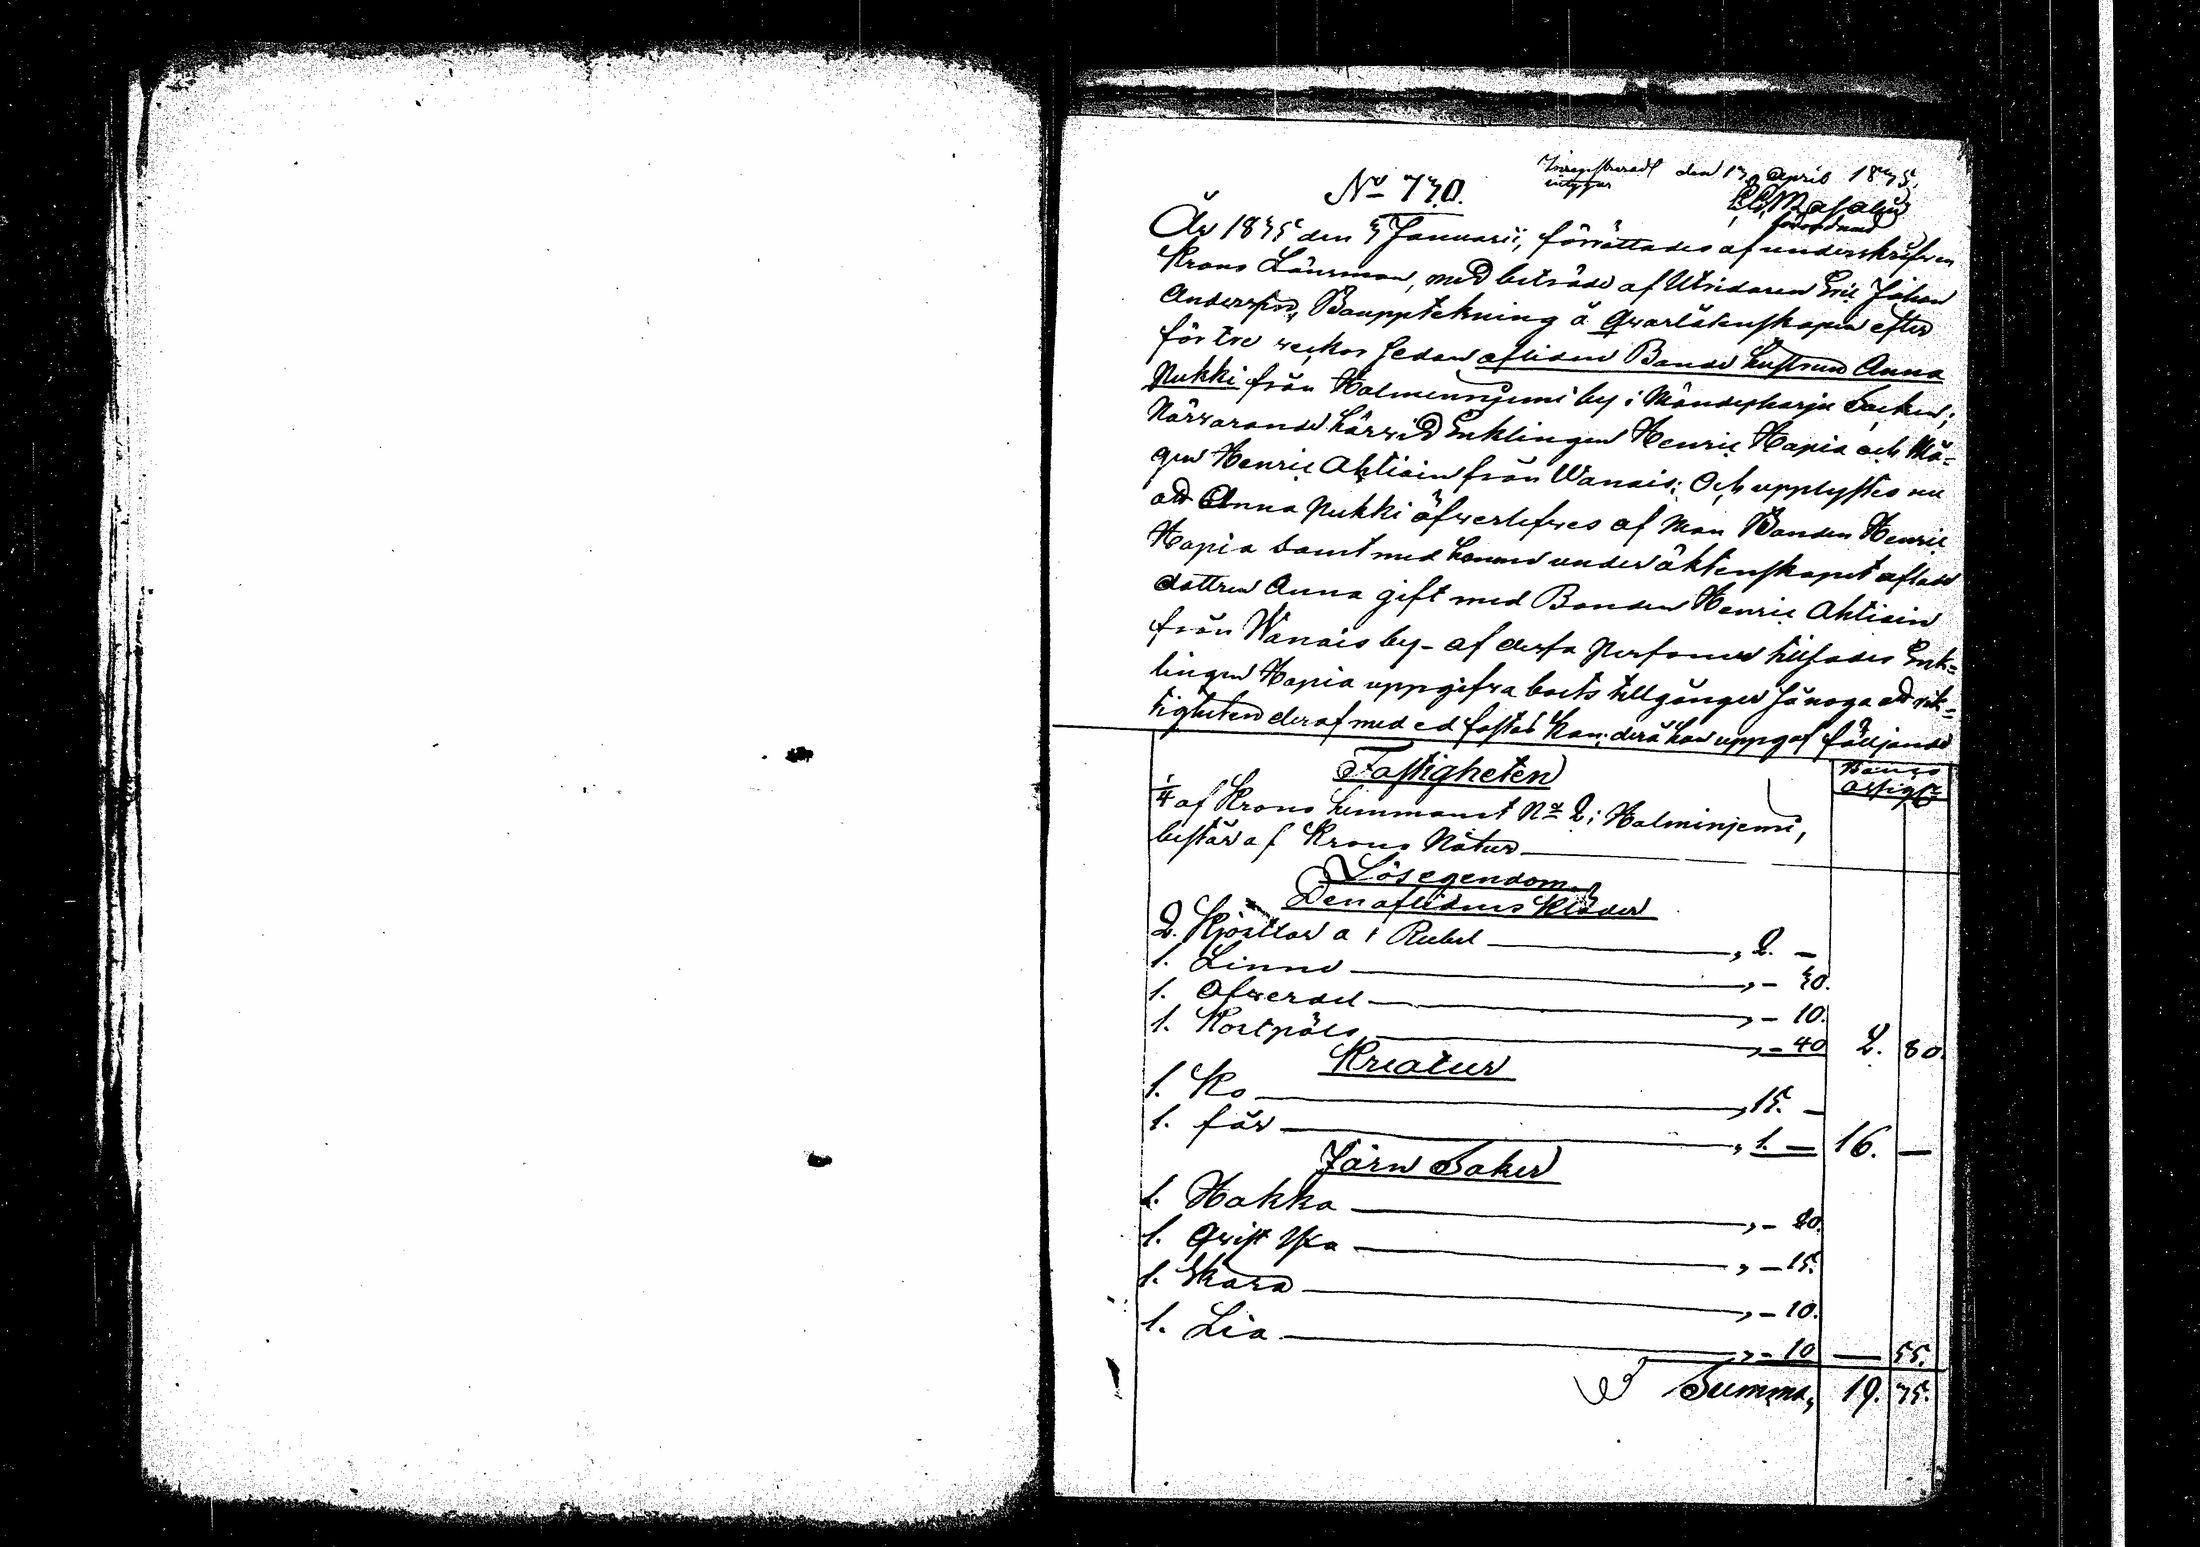 Inregistreradt den 13 April 1875.
intygar
No 730.
År 1875 den 7 Januarii, förrättades af underskrifven
Krono Länsman, med biträde af Utridaren Eric Johan
Andersson, Bouppteckning å Qvarlåtenskapen efter
för tre veckor sedan aflidne Bonde hustrun Anna
Pukki från Halmenniemi by i Mändyharju Socken;
Närvarande härvid Enklingen Henric Hapia och Må-
gen Henric Ahtiain från Vanais; Och upplystes nu
att Anna Pukki öfverlefves af Man Bonden Henric
Hapia samt med honom under äktenskapet aflade
dottren Anna gift med Bonden Henric Ahtiain
från Wanais by - af dessa Personer tillsades Enk-
lingen Hapia uppgifva boets tillgångar så noga att rik-
tigheten deraf med ed fästas kan; derå han uppgaf följande
Fastigheten
1/4 af Krono hemmanet No 2 i Halminjemi,
består af Krono Natur
Lösegendom.
Den aflidnes Kläder
2. Kjortlar a 1 Rubel „ 2. —
1. Linne „ - 30.
1. Öfverdel „ - 10.
1. Kortpäls „ - 40 2. 80.
Kreatur
1. Ko „ 15. —
1. får „ 1. — 16. —
Järn Saker
1. Hakka „ - 20.
1. Qvist Yxa „ - 15.
1. Skära „ - 10.
1. Lia „ - 10 — 55.
Summa, 19. 35.